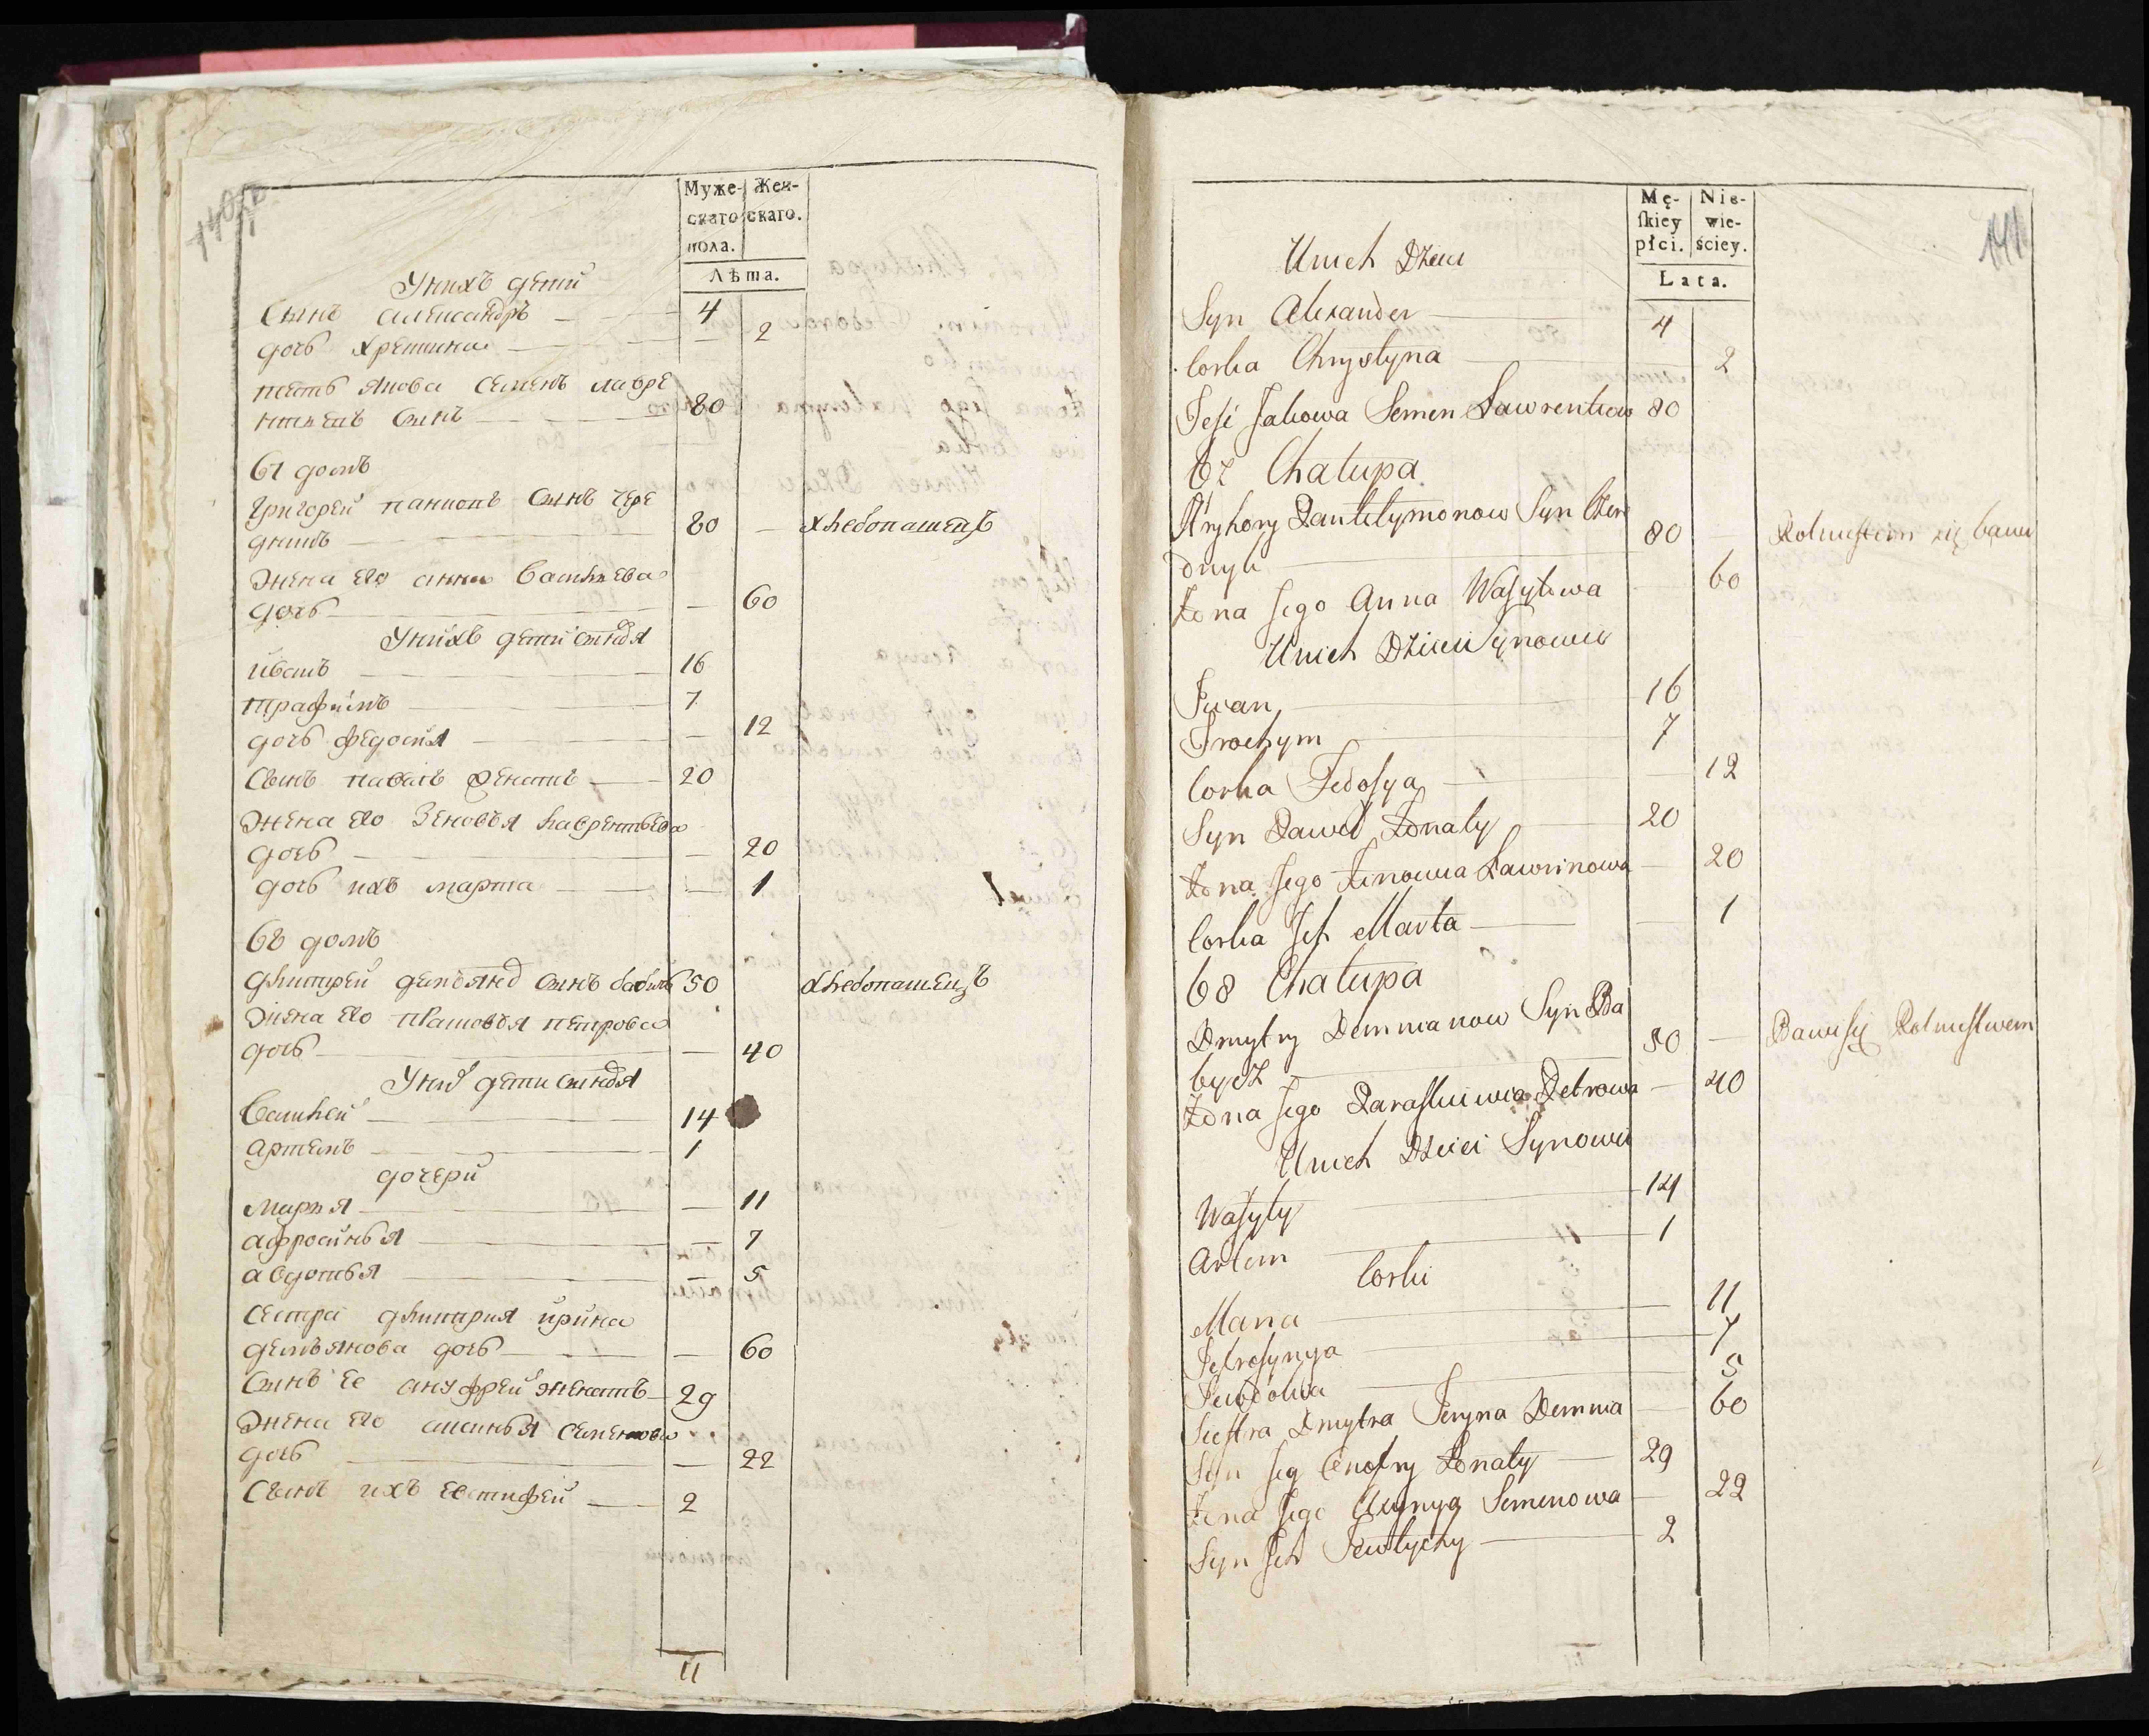 140
Муже-
скаго
пола.
Жен-
скаго.
Лѣта.
У нихъ дети
Сынъ александръ 4
дочь христина — 2
тесть якова Семенъ лавре
нтьевъ Сынъ 80
67 домъ
Григорей пантюпъ Сынъ чере
дникъ 80 — хлебопашецъ
Жена Его анна васильева
дочь — 60
У нихъ дети сыновья
иванъ 16
трафимъ 7
дочь федосия — 12
Сынъ павелъ женатъ 20
Жена Его Зеновья лаврентьева
дочь — 20
дочь ихъ марта — 1
68 домъ
дмитрей демьяновъ Сынъ бабичь 50 хлебопашецъ
Жена Его прасковья петрова
дочь — 40
У них дети сыновья
василей 14
артемъ 1
дочери
марья — 11
афросинья — 7
авдотья — 5
Сестра дмитрия ирина
демьянова дочь — 60
Сынъ Ее ануфрей женатъ 29
Жена Его аксинья семенова
дочь — 22
Сынъ ихъ Евтифей 2
11
141
Mę-
skiey
płci.
Nie-
wie-
ściey.
Lata.
Unich Dzieci
Syn Alexander 4
Corka Chrystyna — 2
Teść Jakowa Semen Ławrentiow 80
67 Chałupa
Hryhory Pantelymonow Syn Czere
dnyk 80 — Rolnictwem się bawi
Żona Jego Anna Wasylowa — 60
Unich Dzieci Synowie
Iwan 16
Trochym 7
Corka Fedosya — 12
Syn Paweł Żonaty 20
Żona Jego Zinowia Ławrinowa — 20
Corka Ich Marta — 1
68 Chałupa
Dmytry Demmianow Syn Ba
bycz 50 — Bawi się Rolnictwem
Żona Jego Paraskiewia Petrowa — 40
Unich Dzieci Synowie
Wasyly 14
Artem 1
Corki
Marya 11
Jefrosynya 7
Jewdokia 5
Siestra Dmytra Jeryna Demmia — 60
Syn Jey Onofry Żonaty 29
Żona Jego Axynya Semenowa — 22
Syn Ich Jewtychy 2